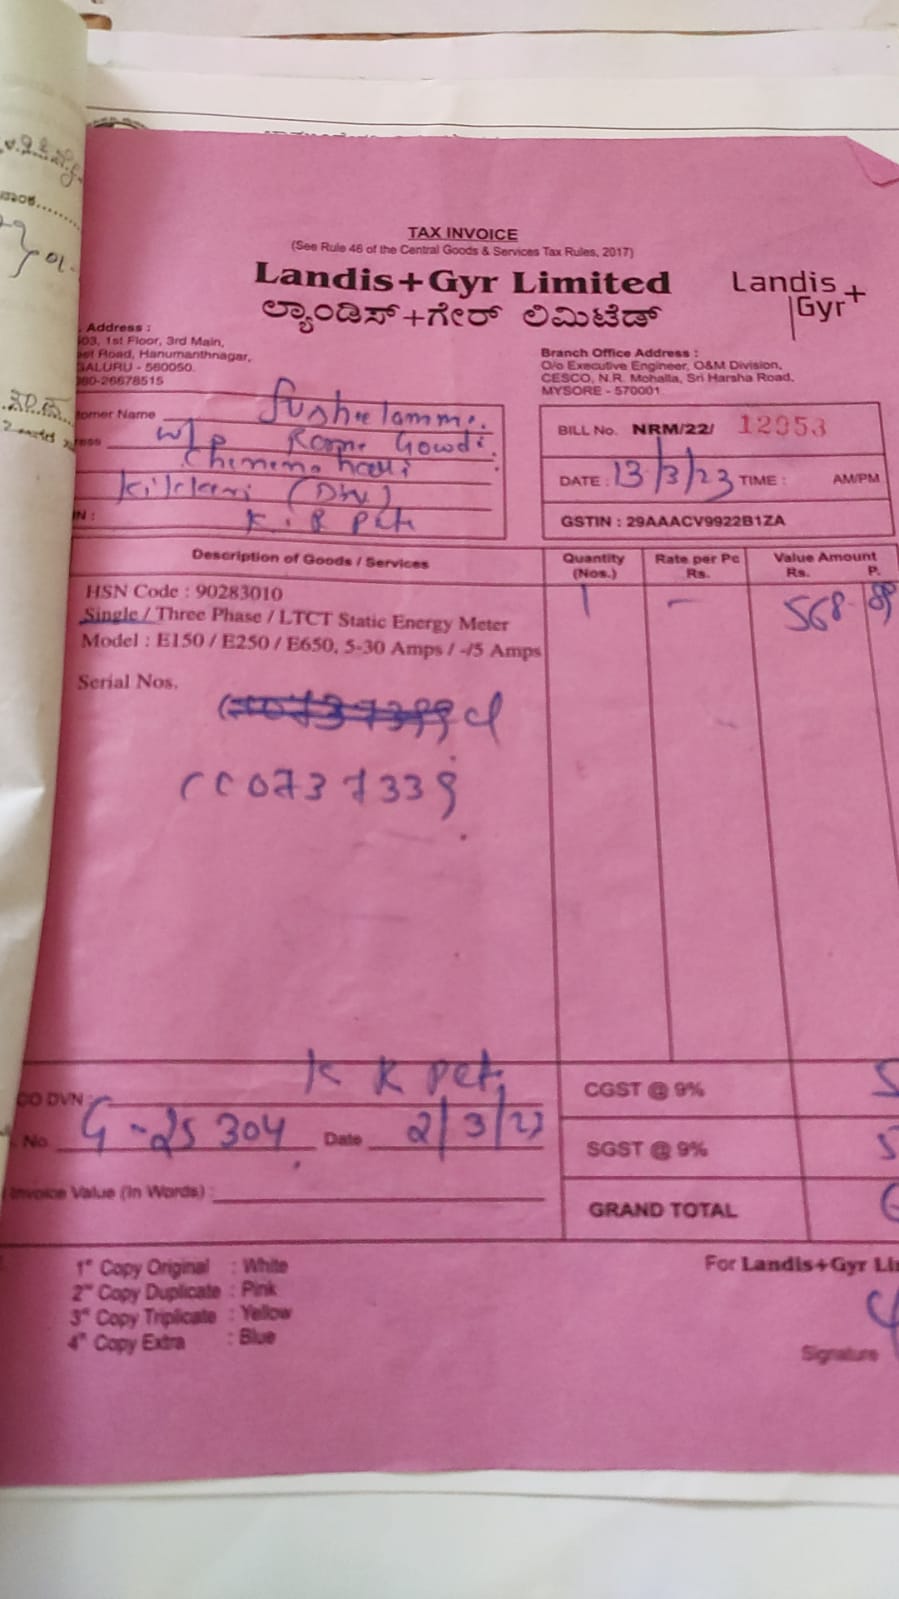 TAX INVOICE
(See Rule 46 of the Central Goods & Services Tax Rules, 2017)
Landis+Gyr Limited
ಲ್ಯಾಂಡಿಸ್+ಗೇರ್ ಲಿಮಿಟೆಡ್
Landis
Gyr+
Address :
03, 1st Floor, 3rd Main,
Road, Hanumanthnagar,
GALURU - 560050.
080-26678515
Branch Office Address :
O/o Executive Engineer, O&M Division,
CESCO, N.R. Mohalla, Sri Harsha Road,
MYSORE - 570001
tomer Name Susheelamma
ress w/o Rame Gowda
Kikkeri (
K. R Pete
BILL No. NRM/22/ 12953
DATE : 13/3/23 TIME : AM/PM
GSTIN : 29AAACV9922B1ZA
Description of Goods / Services Quantity (Nos.) Rate per Pc Rs. Value Amount Rs. P.
HSN Code : 90283010 1 - 568 89
Single / Three Phase / LTCT Static Energy Meter
Model : E150 / E250 / E650, 5-30 Amps / -/5 Amps
Serial Nos.
CO DVN : K R Pet
No. G-25304 Date 2/3/23
Invoice Value (In Words) :
CGST @ 9% 5
SGST @ 9% 5
GRAND TOTAL
1st Copy Original : White
2nd Copy Duplicate : Pink
3rd Copy Triplicate : Yellow
4th Copy Extra : Blue
For Landis+Gyr Li
Signature